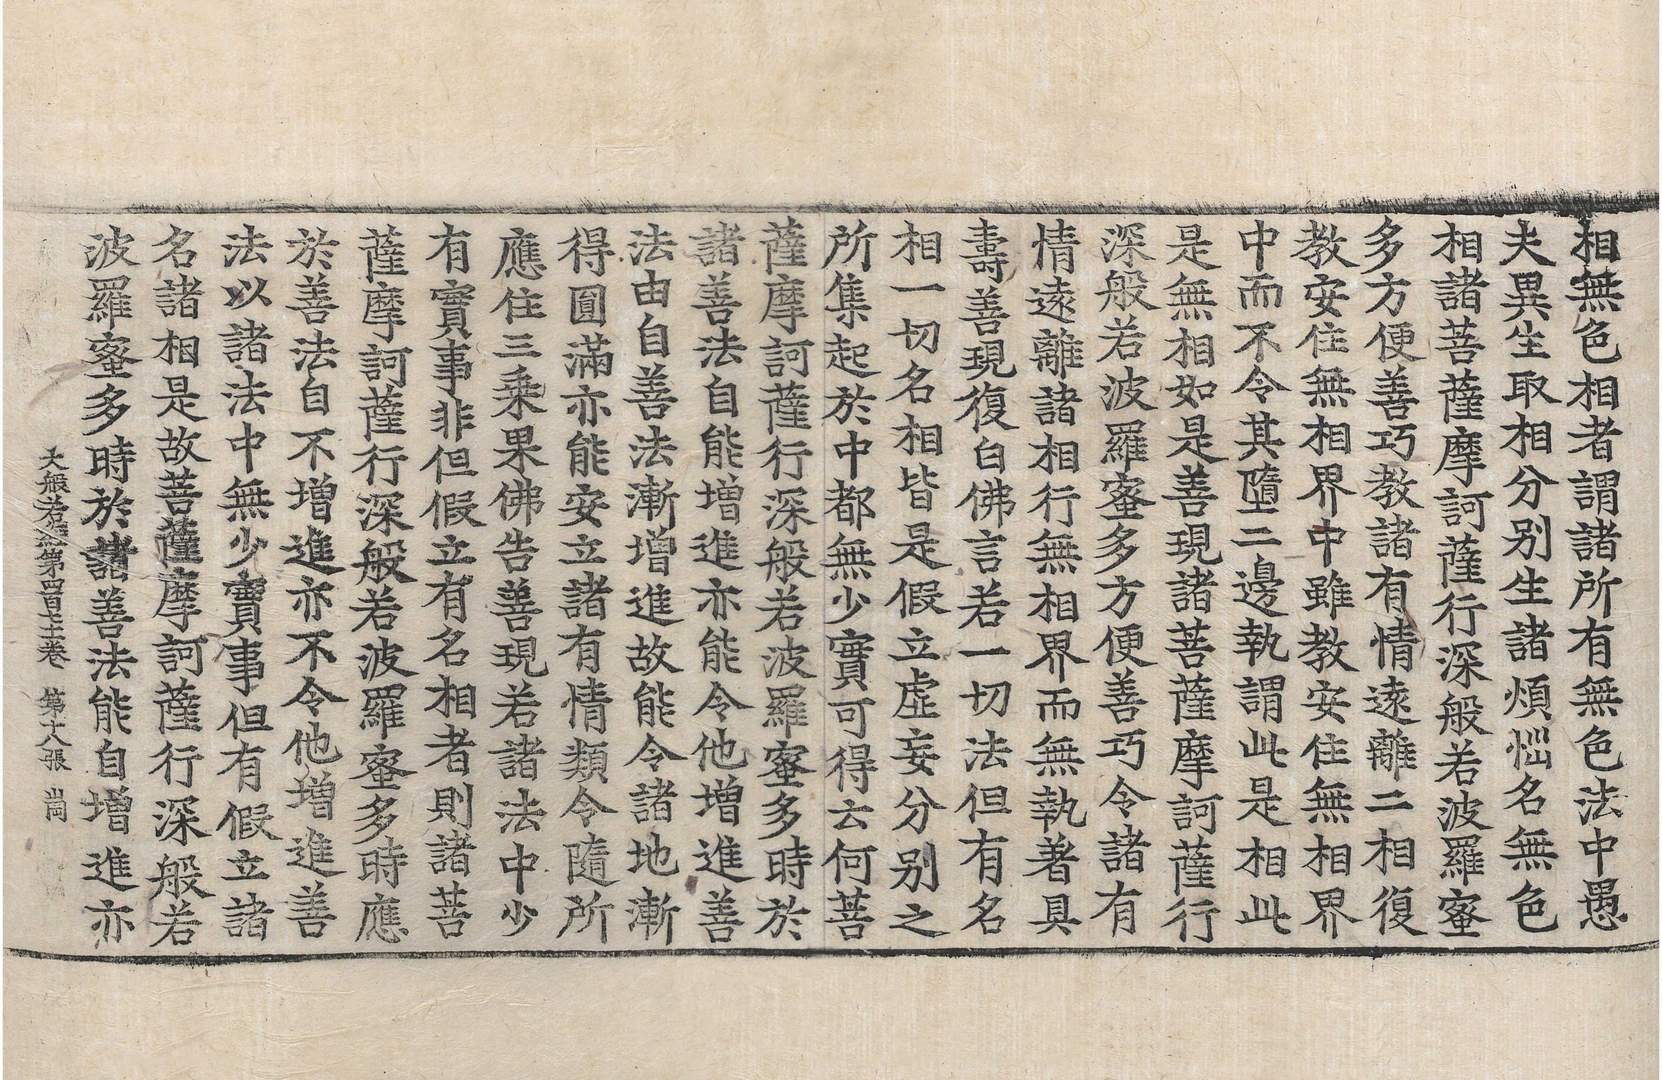 相無色相者謂諸所有無色法中愚
夫異生取相分别生諸煩惱名無色
相諸菩薩摩訶薩行深般若波羅蜜
多方便善巧教諸有情遠離二相復
教安住無相界中雖教安住無相界
中而不令其墮二邊執謂此是相此
是無相如是善現諸菩薩摩訶薩行
深般若波羅蜜多方便善巧令諸有
情遠離諸相行無相界而無執著具
壽善現復白佛言若一切法但有名
相一切名相皆是假立虛妄分别之
所集起於中都無少實可得云何菩
薩摩訶薩行深般若波羅蜜多時於
諸善法自能增進亦能令他增進善
法由自善法漸增進故能令諸地漸
得圓滿亦能安立諸有情類令隨所
應住三乘果佛告善現若諸法中少
有實事非但假立有名相者則諸菩
薩摩訶薩行深般若波羅蜜多時應
於善法自不增進亦不令他增進善
法以諸法中無少實事但有假立諸
名諸相是故菩薩摩訶薩行深般若
波羅蜜多時於諸善法能自增進亦
大般若經第四百七十二卷 第十八張 崗